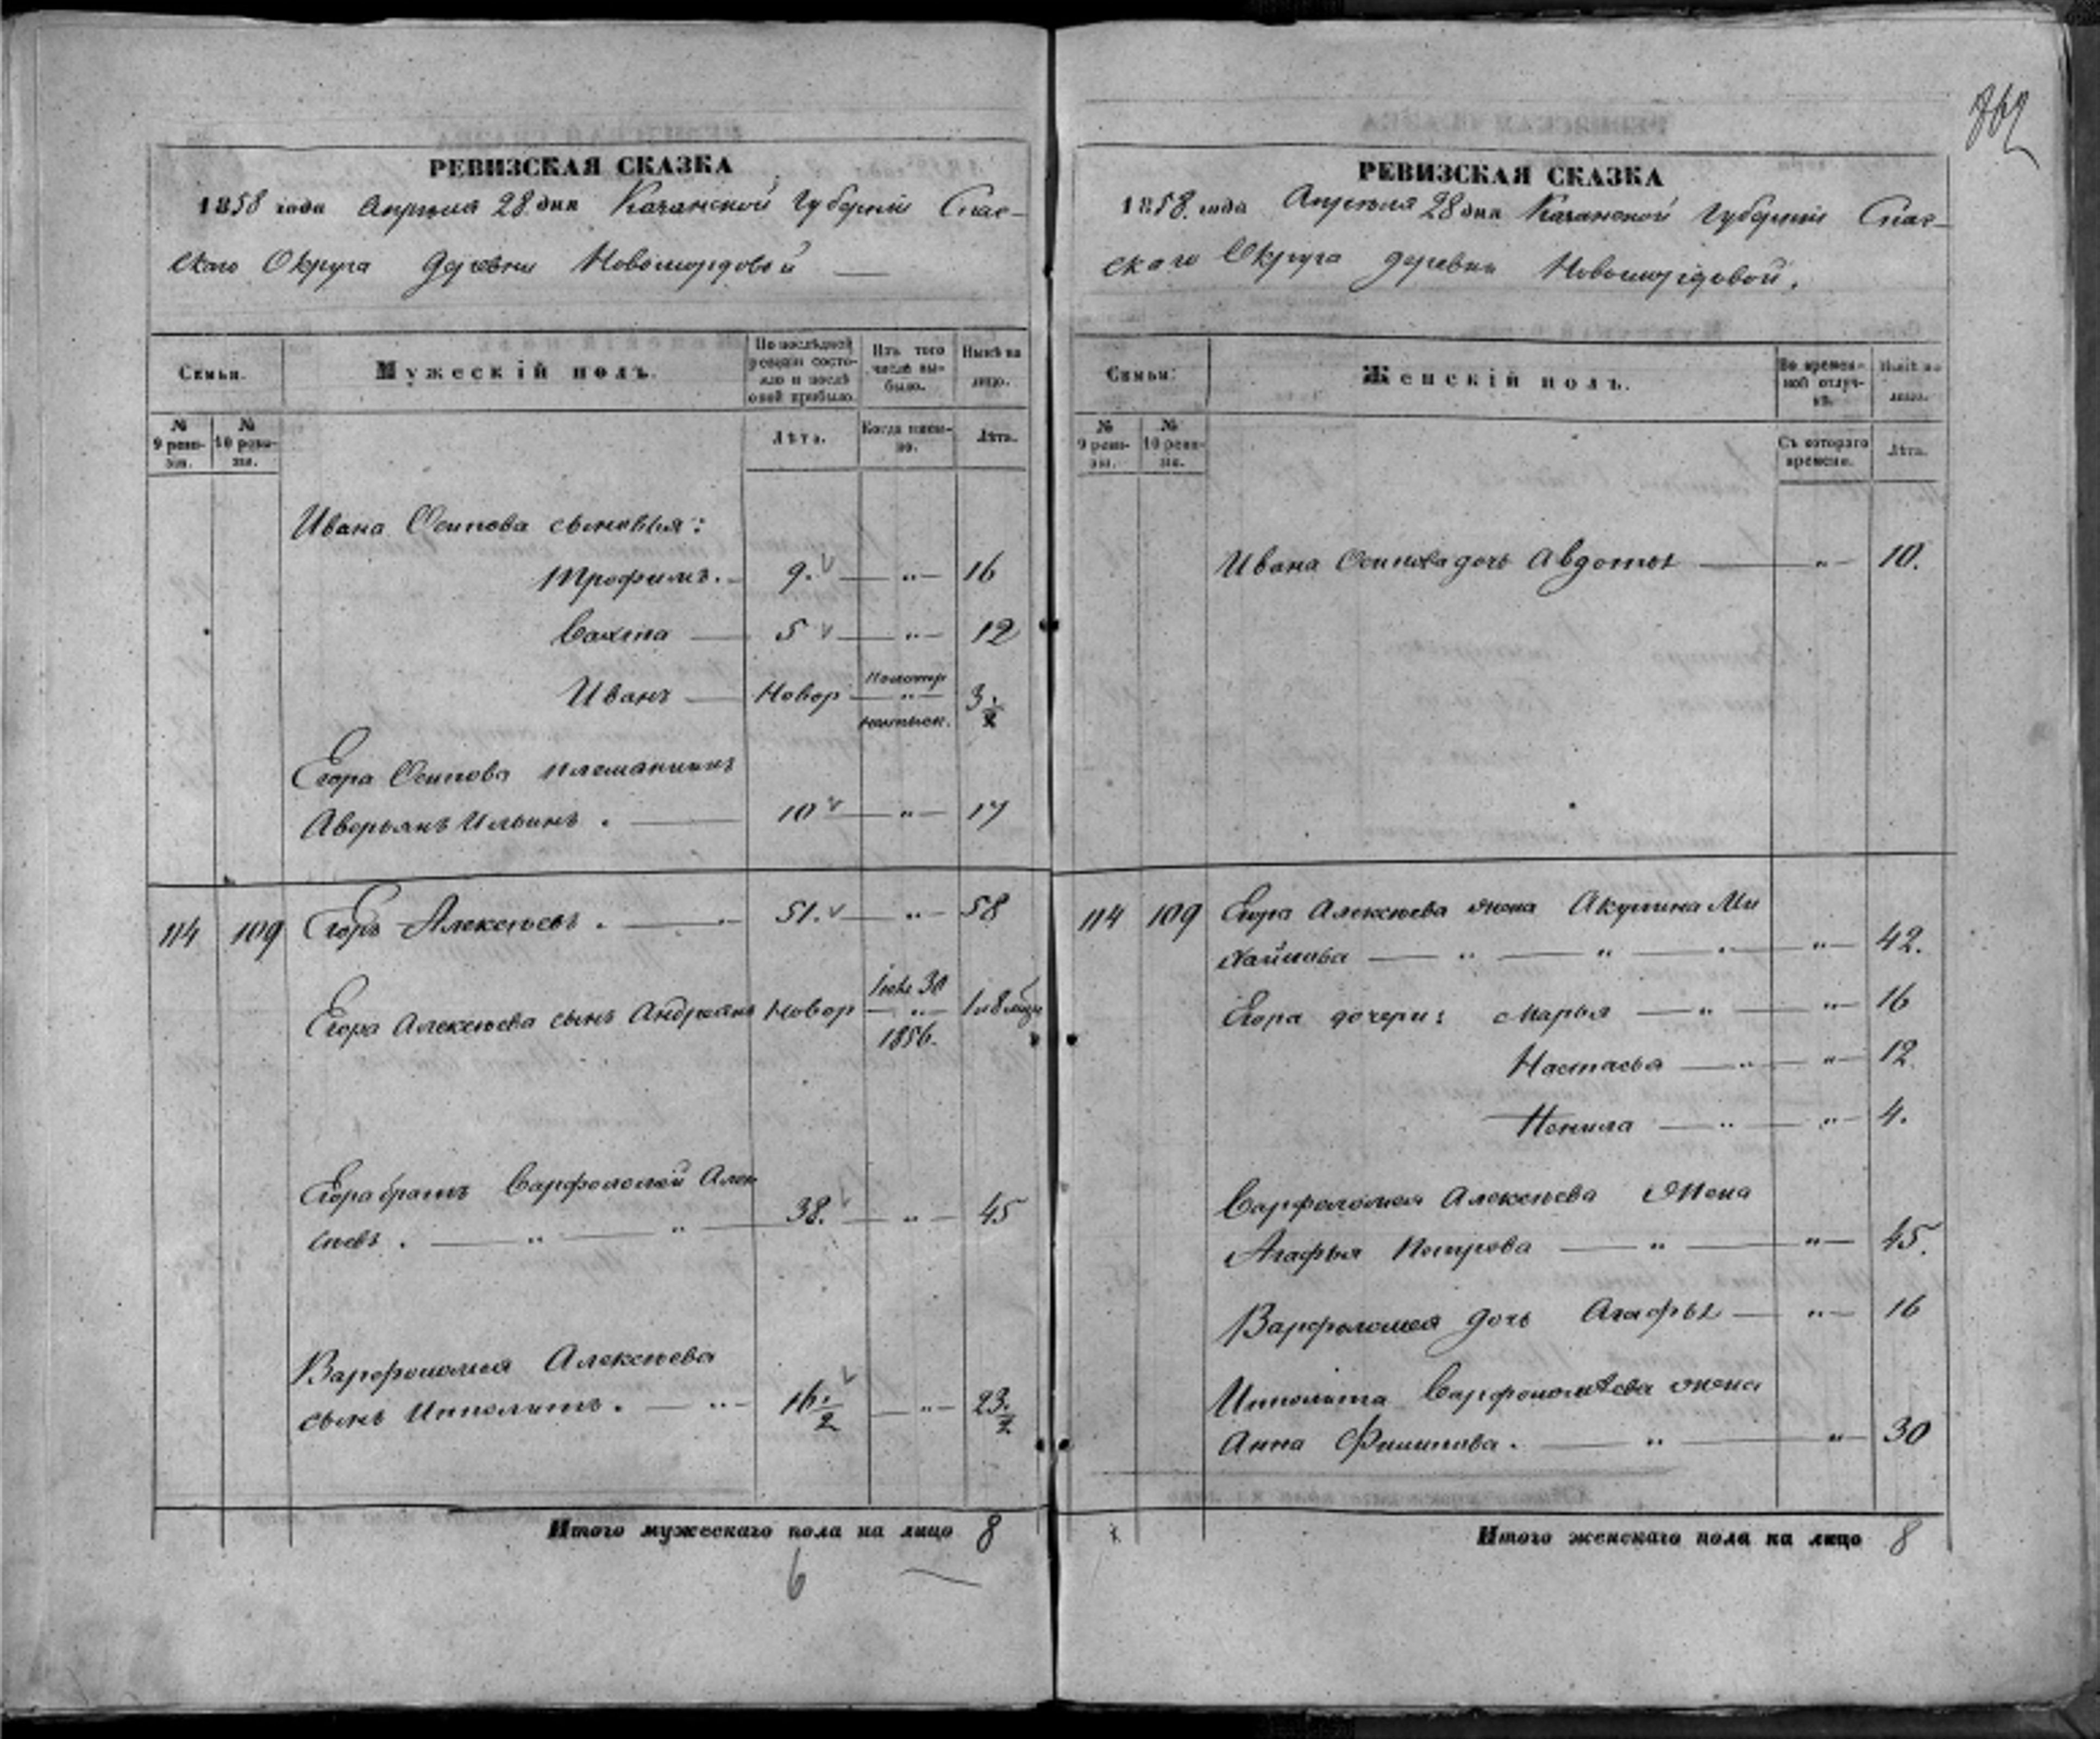 862
РЕВИЗСКАЯ СКАЗКА
1858 года Апрѣля 28 дня Казанской Губерніи Спас-
скаго Округа деревни Новомордовой
Семьи.
Мужескій полъ.
По послѣдней ревизіи состояло и послѣ оной прибыло.
Изъ того числа выбыло.
Нынѣ на лицо.
№ 9 ревизіи.
№ 10 ревизіи.
Лѣта.
Когда именно.
Лѣта.
Ивана Осипова сыновья:
Трофимъ. 9. „ 16
Савта 5 „ 12
Иванъ Новор „ 3 1/2
Егора Осипова племянникъ
Аверьянъ Ильинъ. 10 „ 17
114 109 Егоръ Алексѣевъ. 51. „ 58
Егора Алексѣева сынъ Андреянъ Новор 30 „ 1856. 1 и 8 мцы
Егора братъ Варфоломей Алек
сѣевъ. „ „ 38. „ 45
Варфоломея Алексѣева
сынъ Ипполитъ. „ 16 1/2 „ 23 1/2
Итого мужескаго пола на лицо 8
6
РЕВИЗСКАЯ СКАЗКА
1858. года Апрѣля 28 дня Казанской Губерніи Спас-
скаго Округа деревни Новомордовой.
Семьи.
Женскій полъ.
Во временной отлучкѣ.
Нынѣ на лицо.
№ 9 ревизіи.
№ 10 ревизіи.
Съ котораго времени.
Лѣта.
Ивана Осипова дочь Авдотья „ 10.
114 109 Егора Алексѣева жена Акулина Ми
хайлова „ „ „ „ 42.
Егора дочери: Марья „ „ 16
Настасья „ „ 12
Ненила „ „ 4.
Варфоломея Алексѣева жена
Агафья Петрова „ „ 45.
Варфоломея дочь Агафья „ 16
Ипполита Варфоломѣева жена
Анна Филипова. „ „ 30
Итого женскаго пола на лицо 8